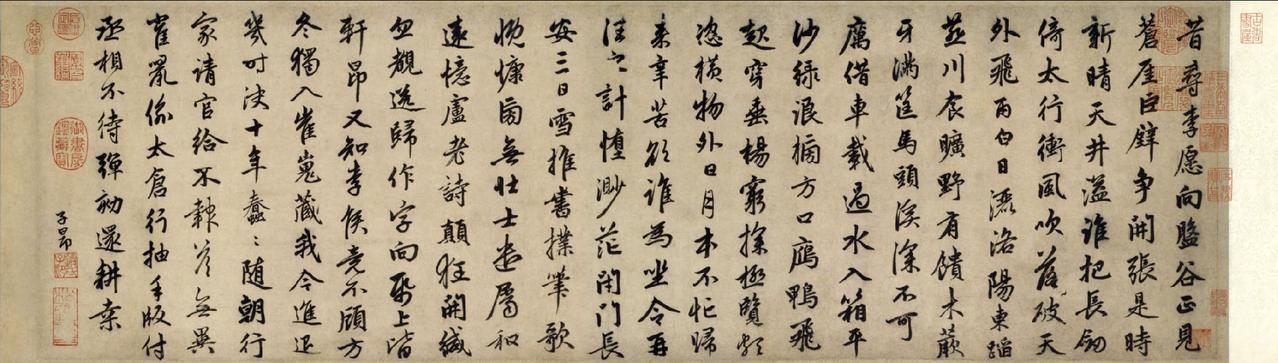 昔尋李愿向盤谷正見
蒼厓巨壁爭開張是時
新晴天井溢誰把長劒
倚太行衝風吹落破天
外飛雨白日灑洛陽東蹈
燕川食曠野有饋木蕨
牙滿筐馬頭溪深不可
厲借車載過水入箱平
沙綠浪搒方口鴈鴨飛
起穿垂楊窮探極覽頗
恣橫物外日月本不忙歸
来辛苦欲誰為坐令再
往之計墮渺茫閉門長
安三日雪推書撲筆歌
慨慷旁無壮士遣屬和
遠憶盧老詩顛狂開緘
忽覩送歸作字向紙上皆
軒昂又知李侯竟不顧方
冬獨入崔嵬藏我今進退
幾時决十年蠢〻随朝行
家請官給不報答無異
雀鼠偷太倉行抽手版付
丞相不待彈劾還耕桒
子昂